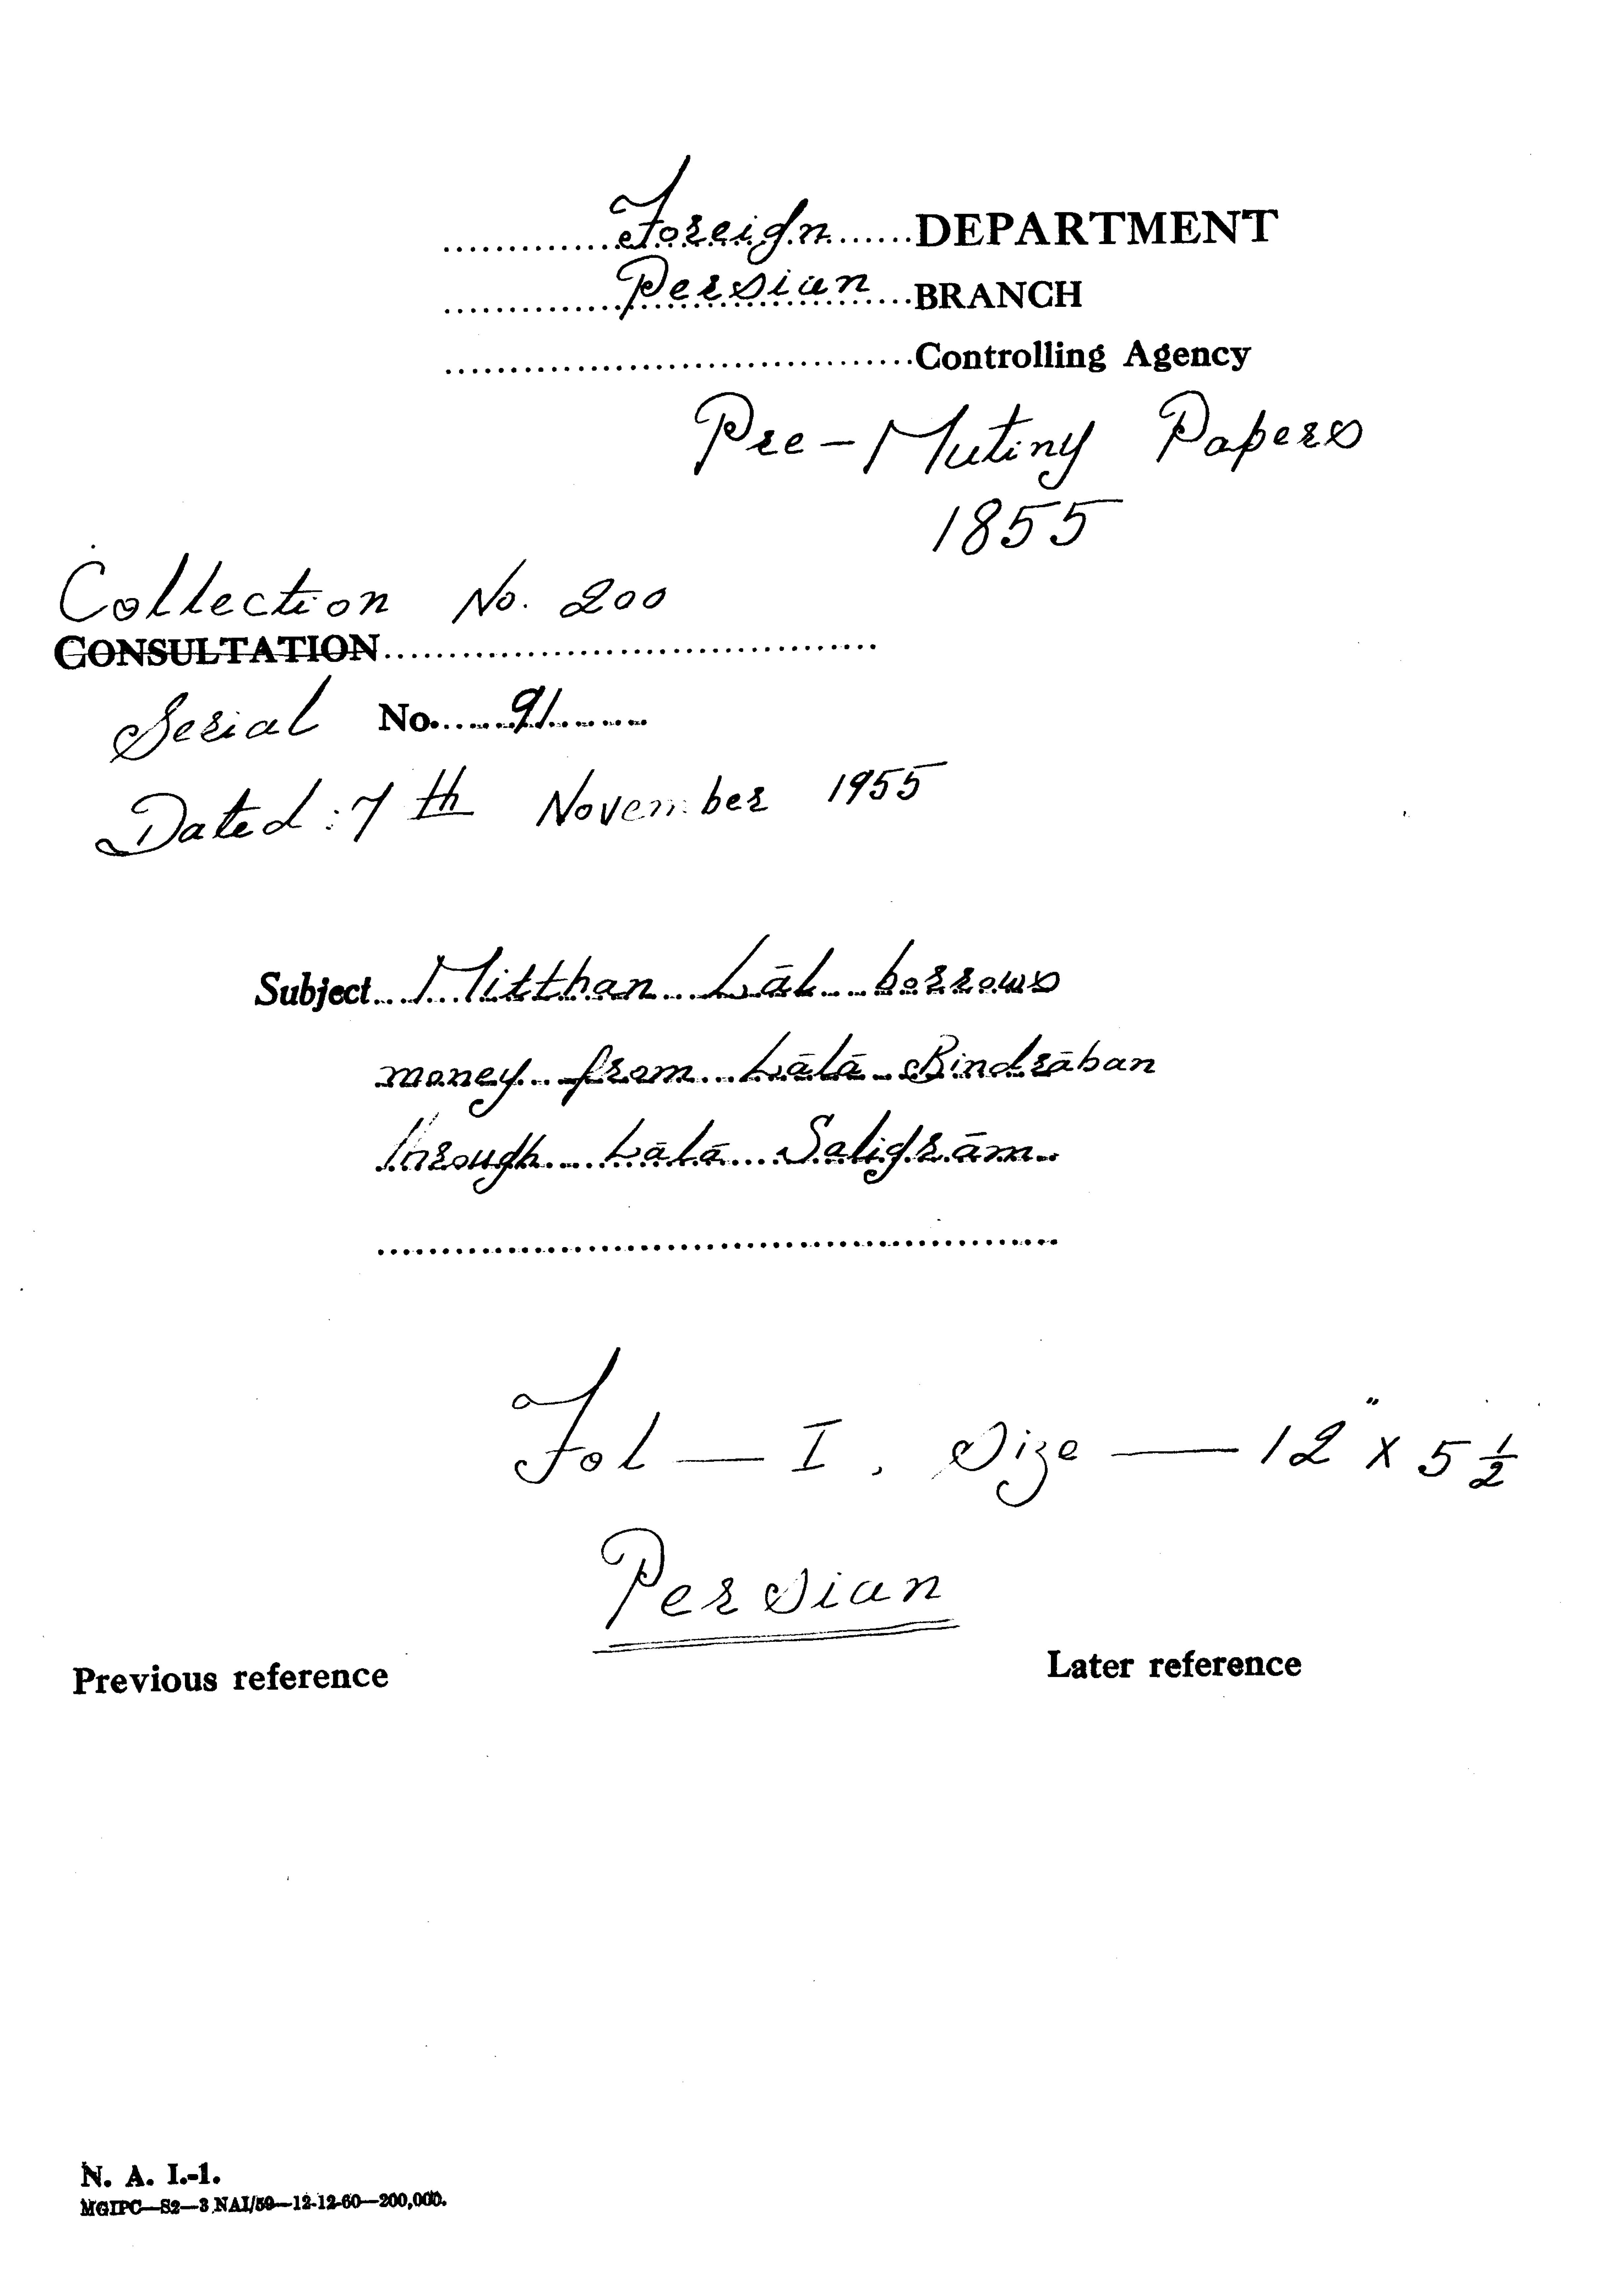 Foreign DEPARTMENT
Persian BRANCH
Controlling Agency
Pre-Mutiny Papers
1855
Collection No. 200
CONSULTATION
Serial No. 91
Dated: 7th November 1955
Subject Mitthan Lāl borrows
money from Lālā Bindrāban
through Lālā Saligrām
Fol — I, Size — 12" x 5 ½
Persian
Previous reference Later reference
N. A. I.-1.
MGIPC—S2—3 NAI/59—12-12-60—200,000.